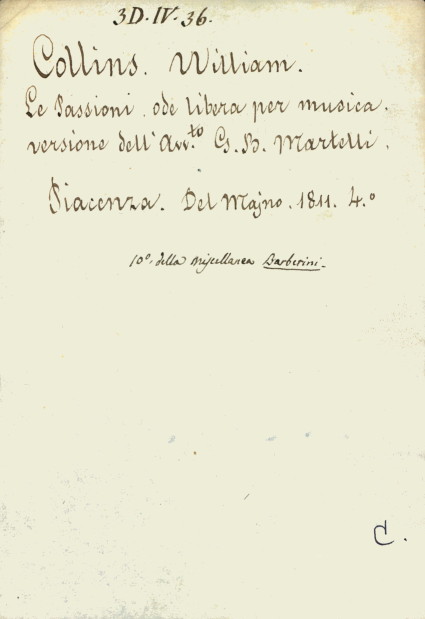 3D. IV. 36.
Collins. William.
Le Passioni. ode libera per musica.
versione dell'Avv.to G. B. Martelli.
Piacenza. Del Majno. 1811. 4.o
10o. della Miscellanea Barberini.
C.